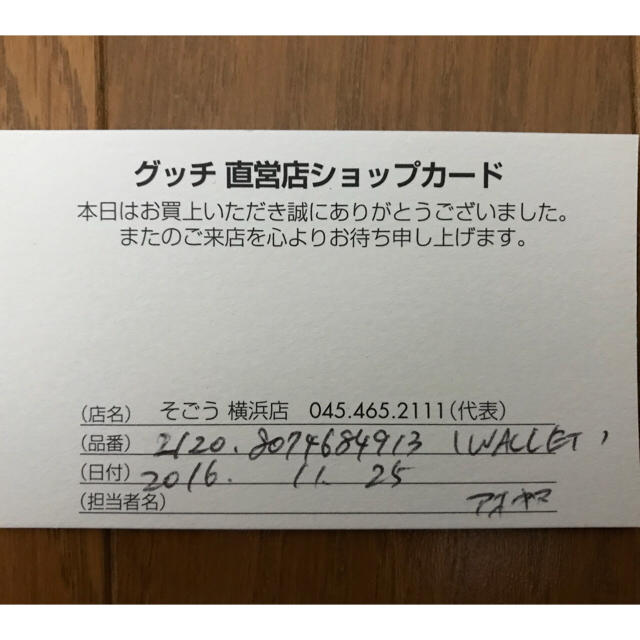 グッチ 直営店ショップカード
本日はお買上いただき誠にありがとうございました。
またのご来店を心よりお待ち申し上げます。
(店名) そごう 横浜店 045.465.2111(代表)
(品番) 2120.8074684913 (WALLET)
(日付) 2016. 11. 25
(担当者名) アオヤマ